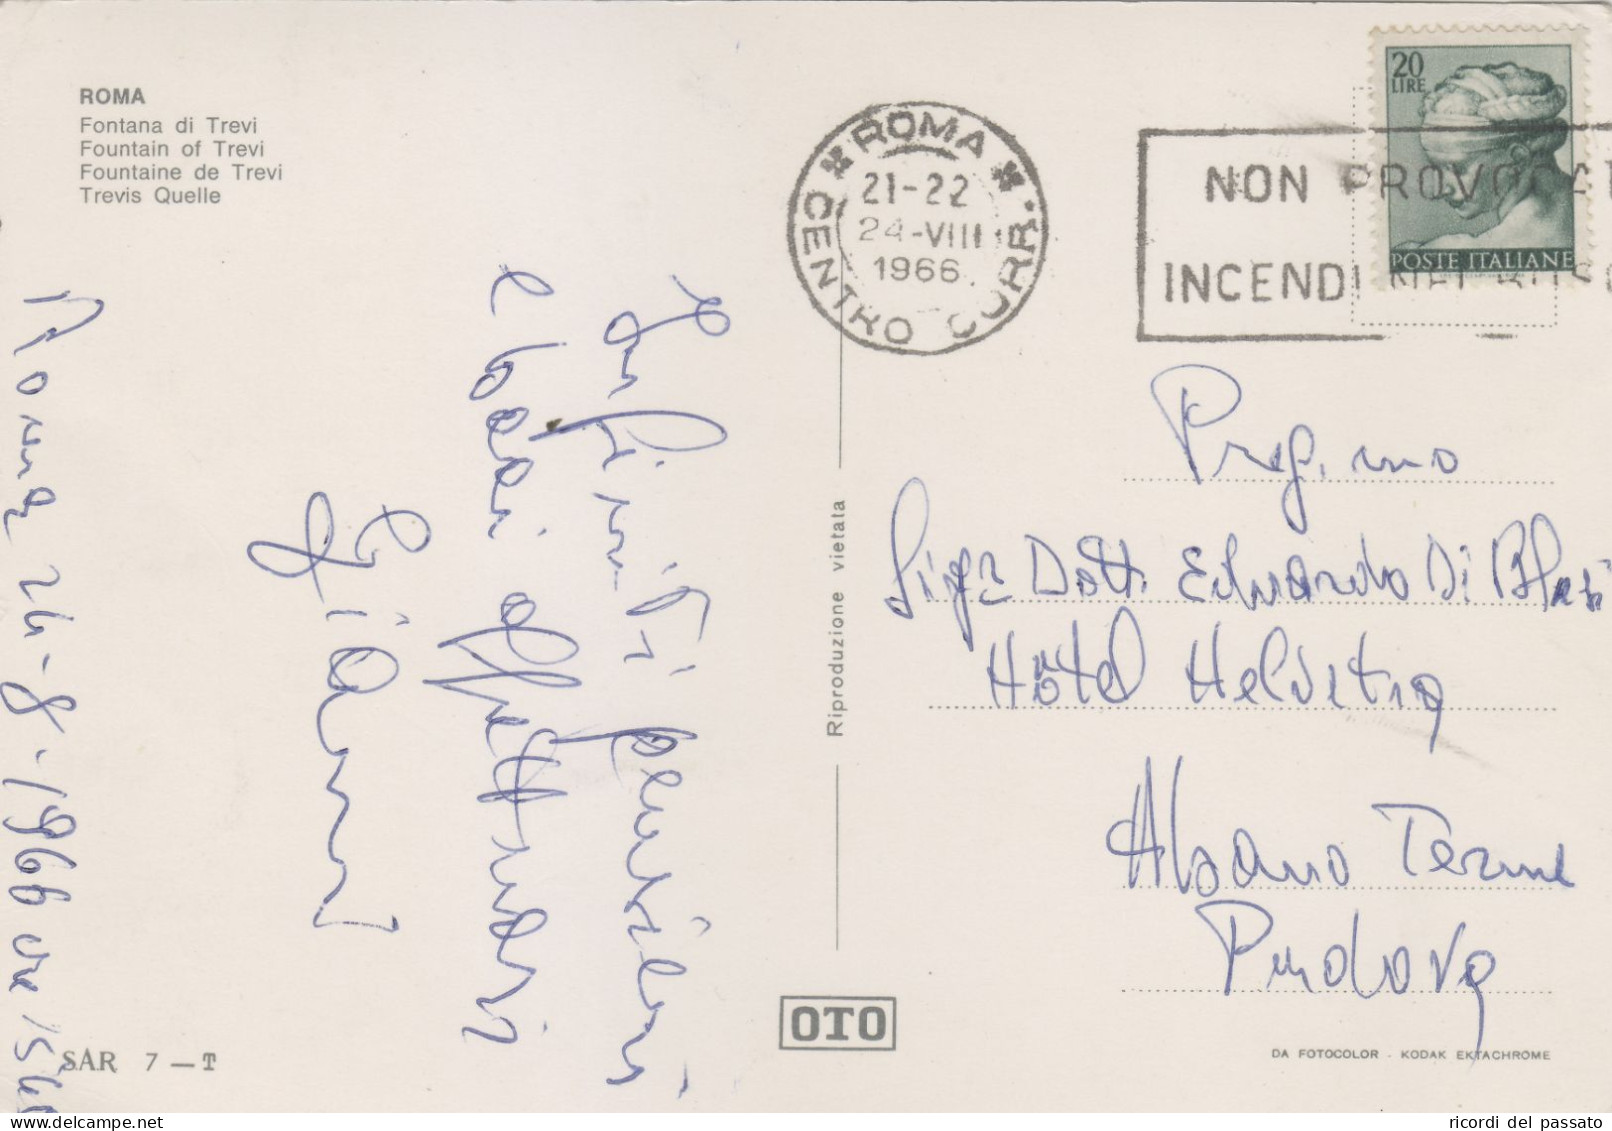 ROMA
Fontana di Trevi
Fountain of Trevi
Fountaine de Trevi
Trevis Quelle
Roma 24-8-1966 ore 15
Infiniti pensieri
e baci affettuosi
Gianni
SAR 7 — T
Riproduzione vietata
OTO
ROMA
CENTRO CORR.
21-22
24-VIII
1966
NON PROVOCAT
INCENDI NEI BOSC
20
LIRE
POSTE ITALIANE
Preg.mo
Dott. Eduardo Di Blasi
Hôtel Helvetia
Abano Terme
Padova
DA FOTOCOLOR - KODAK EKTACHROME
ricordi del passato